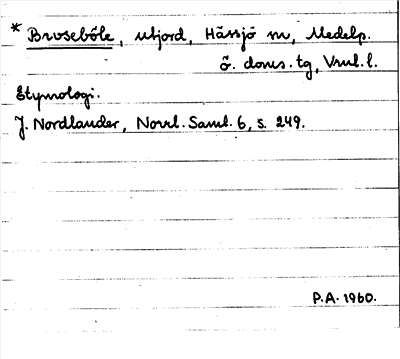 * Broseböle, utjord, Hässjö sn, Medelp.
ö. doms. tg, Vnrl. l.
Etymologi.
J. Nordlander, Norrl. Saml. 6, s. 249.
P.A. 1960.